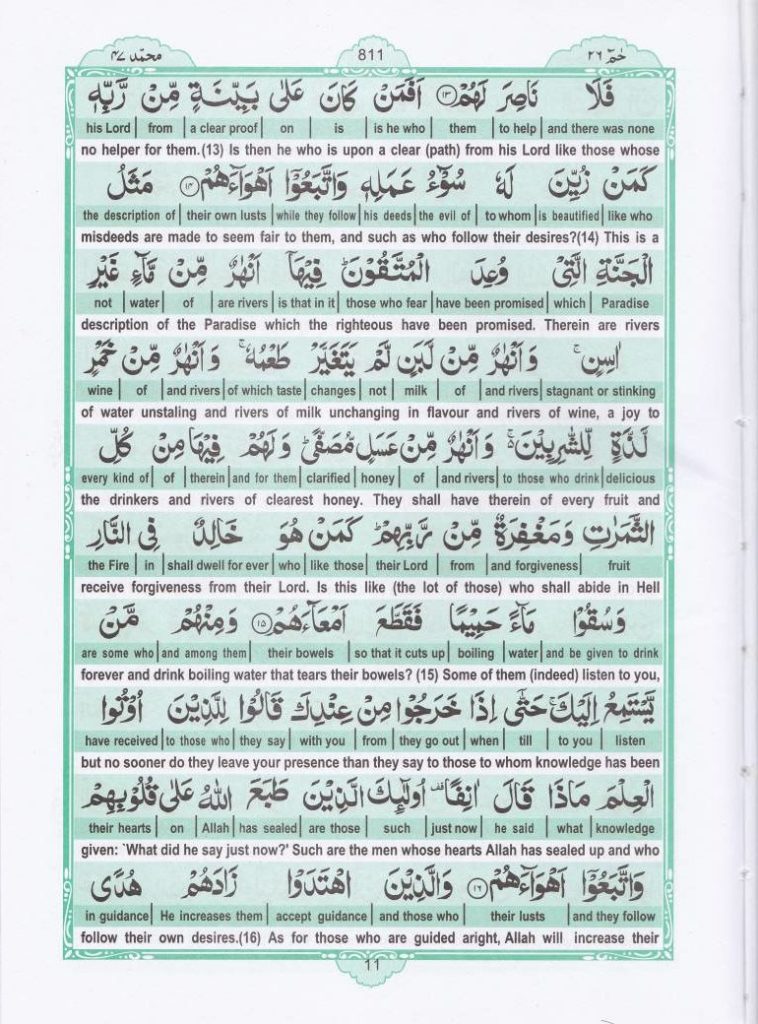 محمّد ۴۷ 811 حٰمٓ ۲۶
فَلَا نَاصِرَ لَهُمْ ۝۱۳ اَفَمَنْ كَانَ عَلٰى بَيِّنَةٍ مِّنْ رَّبِّهٖ
his Lord | from | a clear proof | on | is | is he who | them | to help | and there was none
no helper for them.(13) Is then he who is upon a clear (path) from his Lord like those whose
كَمَنْ زُيِّنَ لَهٗ سُوْٓءُ عَمَلِهٖ وَاتَّبَعُوْٓا اَهْوَآءَهُمْ ۝۱۴ مَثَلُ
the description of | their own lusts | while they follow | his deeds | the evil of | to whom | is beautified | like who
misdeeds are made to seem fair to them, and such as who follow their desires?(14) This is a
الْجَنَّةِ الَّتِيْ وُعِدَ الْمُتَّقُوْنَ ؕ فِيْهَآ اَنْهٰرٌ مِّنْ مَّآءٍ غَيْرِ
not | water | of | are rivers | is that in it | those who fear | have been promised | which | Paradise
description of the Paradise which the righteous have been promised. Therein are rivers
اٰسِنٍ ۚ وَاَنْهٰرٌ مِّنْ لَّبَنٍ لَّمْ يَتَغَيَّرْ طَعْمُهٗ ۚ وَاَنْهٰرٌ مِّنْ خَمْرٍ
wine | of | and rivers | of which taste | changes | not | milk | of | and rivers | stagnant or stinking
of water unstaling and rivers of milk unchanging in flavour and rivers of wine, a joy to
لَّذَّةٍ لِّلشّٰرِبِيْنَ ۚ وَاَنْهٰرٌ مِّنْ عَسَلٍ مُّصَفًّى ؕ وَلَهُمْ فِيْهَا مِنْ كُلِّ
every kind of | of | therein | and for them | clarified | honey | of | and rivers | to those who drink | delicious
the drinkers and rivers of clearest honey. They shall have therein of every fruit and
الثَّمَرٰتِ وَمَغْفِرَةٌ مِّنْ رَّبِّهِمْ ؕ كَمَنْ هُوَ خَالِدٌ فِي النَّارِ
the Fire | in | shall dwell for ever | who | like those | their Lord | from | and forgiveness | fruit
receive forgiveness from their Lord. Is this like (the lot of those) who shall abide in Hell
وَسُقُوْا مَآءً حَمِيْمًا فَقَطَّعَ اَمْعَآءَهُمْ ۝۱۵ وَمِنْهُمْ مَّنْ
are some who | and among them | their bowels | so that it cuts up | boiling | water | and be given to drink
forever and drink boiling water that tears their bowels? (15) Some of them (indeed) listen to you,
يَّسْتَمِعُ اِلَيْكَ ۚ حَتّٰٓى اِذَا خَرَجُوْا مِنْ عِنْدِكَ قَالُوْا لِلَّذِيْنَ اُوْتُوا
have received | to those who | they say | with you | from | they go out | when | till | to you | listen
but no sooner do they leave your presence than they say to those to whom knowledge has been
الْعِلْمَ مَاذَا قَالَ اٰنِفًا ۟ اُولٰٓئِكَ الَّذِيْنَ طَبَعَ اللّٰهُ عَلٰى قُلُوْبِهِمْ
their hearts | on | Allah | has sealed | are those | such | just now | he said | what | knowledge
given: `What did he say just now?' Such are the men whose hearts Allah has sealed up and who
وَاتَّبَعُوْٓا اَهْوَآءَهُمْ ۝۱۶ وَالَّذِيْنَ اهْتَدَوْا زَادَهُمْ هُدًى
in guidance | He increases them | accept guidance | and those who | their lusts | and they follow
follow their own desires.(16) As for those who are guided aright, Allah will increase their
11